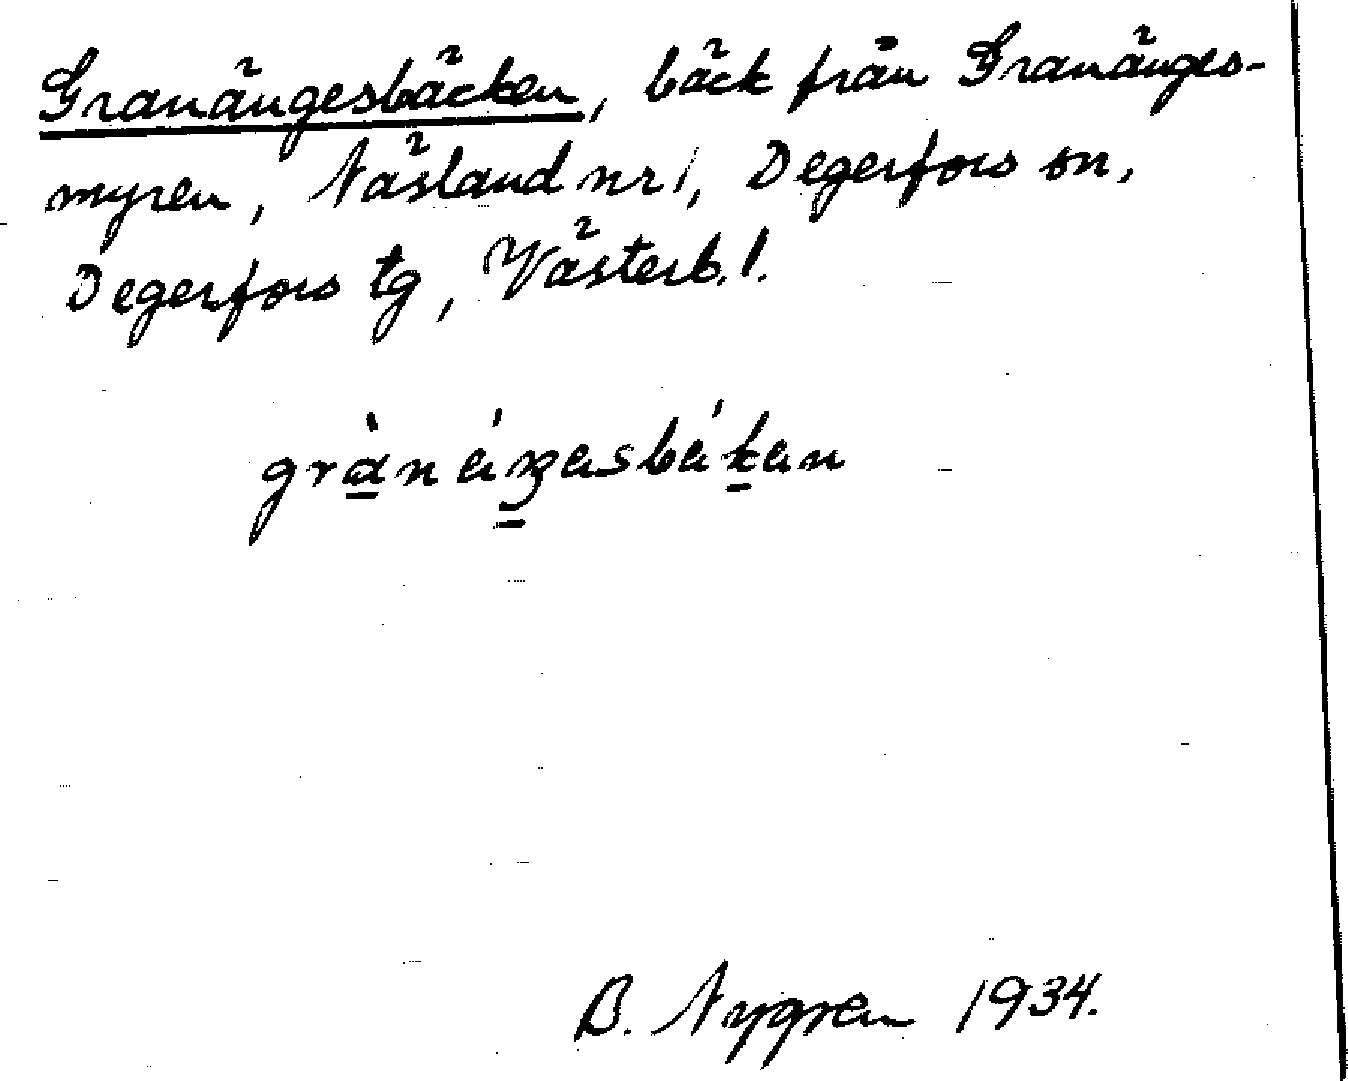 Granängesbäcken, bäck från Granänges-
myren, Näsland nr 1, Degerfors sn,
Degerfors tg, Västerb. l.
B. Nygren 1934.